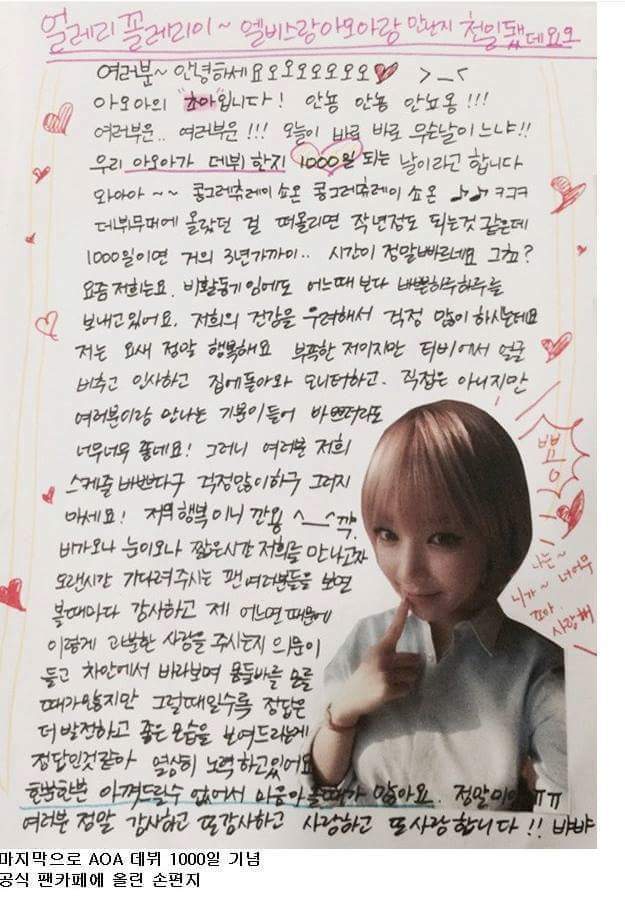 얼레리 꼴레리이~ 엘비스랑아모아랑 만난지 천일됐데요오
여러분~ 안녕하세요오오오오오오오♥ >_<
아오아의 "초아"입니다! 안뇽 안뇽 안뇨옹!!!
여러부운.. 여러부운!!! 오늘이 바로 바로 무슨날이느냐!!
우리 아오아가 데뷔한지 1000일 되는 날이라고 합니다
와아아~~ 콩그레츄레이쇼온 콩그레츄레이쇼온 ♪♪ㅋㄱㅋ
데뷔무대에 올랐던 걸 떠올리면 작년정도 되는것 같은데
1000일이면 거의 3년가까이.. 시간이 정말빠르네요 그쵸?
요즘 저희는요. 비활동기임에도 어느때보다 바쁜하루하루를
보내고있어요. 저희의 건강을 우려해서 걱정 많이 하시는데요
저는 요새 정말 행복해요 부족한 저이지만 티비에서 얼굴
비추고 인사하고 집에돌아와 모니터하고. 직접은 아니지만
여러분이랑 만나는 기분이들어 바쁘더라도
너무너무 좋네요! 그러니 여러분 저희
스케줄 바쁘다구 걱정많이하구 그러지
마세요! 저의행복이니깐용 ^__^ 깍.
비가오나 눈이오나 짧은시간 저희를 만나고자
오랜시간 기다려주시는 팬여러분들을 보면
볼때마다 감사하고 제 어느면때문에
이렇게 과분한 사랑을 주시는지 의문이
들고 차안에서 바라보며 몸둘바를 모를
때가많지만 그럴때일수록 정답은
더발전하고 좋은모습을 보여드리는게
정답인것같아 열심히 노력하고있어요
한분한분 아껴드릴수 없어서 마음아플때가 많아요. 정말미안ㅠㅠ
여러분 정말 감사하고 또감사하고 사랑하고 또사랑합니다!! 뱌뱌
뾰잉
나는~
니가~ 너어무
조아
사랑해
마지막으로 AOA 데뷔 1000일 기념
공식 팬카페에 올린 손편지